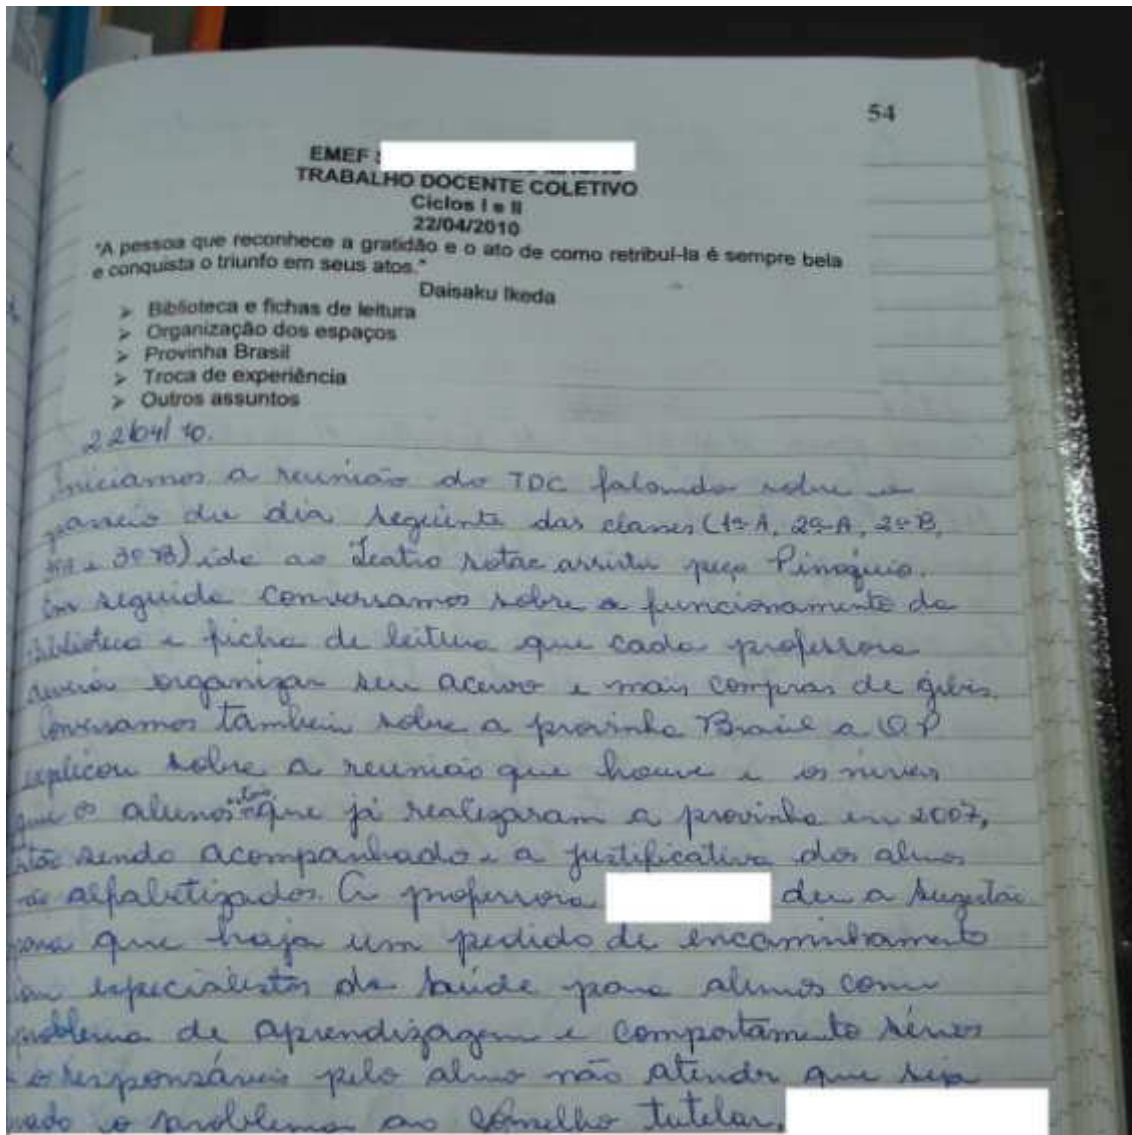 54
EMEF
TRABALHO DOCENTE COLETIVO
Ciclos I e II
22/04/2010
"A pessoa que reconhece a gratidão e o ato de como retribuí-la é sempre bela
e conquista o triunfo em seus atos."
Daisaku Ikeda
➢ Biblioteca e fichas de leitura
➢ Organização dos espaços
➢ Provinha Brasil
➢ Troca de experiência
➢ Outros assuntos
22/04/10.
Iniciamos a reunião do TDC falando sobre o
passeio do dia seguinte das classes (1ºA, 2ºA, 2ºB,
e 3ºB) ida ao Teatro assistir peça Pinóquio.
Em seguida conversamos sobre o funcionamento da
biblioteca e ficha de leitura que cada professora
deverá organizar seu acervo e mais compras de gibis.
Conversamos também sobre a provinha Brasil a OP
explicou sobre a reunião que houve e os níveis
que os alunos que já realizaram a provinha em 2007,
estão sendo acompanhado e a justificativa dos alunos
não alfabetizados. A professora deu a sugestão
para que haja um pedido de encaminhamento
especialistas da saúde para alunos com
problema de aprendizagem e comportamento sérios
responsáveis pelo aluno não atender que seja
o problema ao Conselho tutelar.